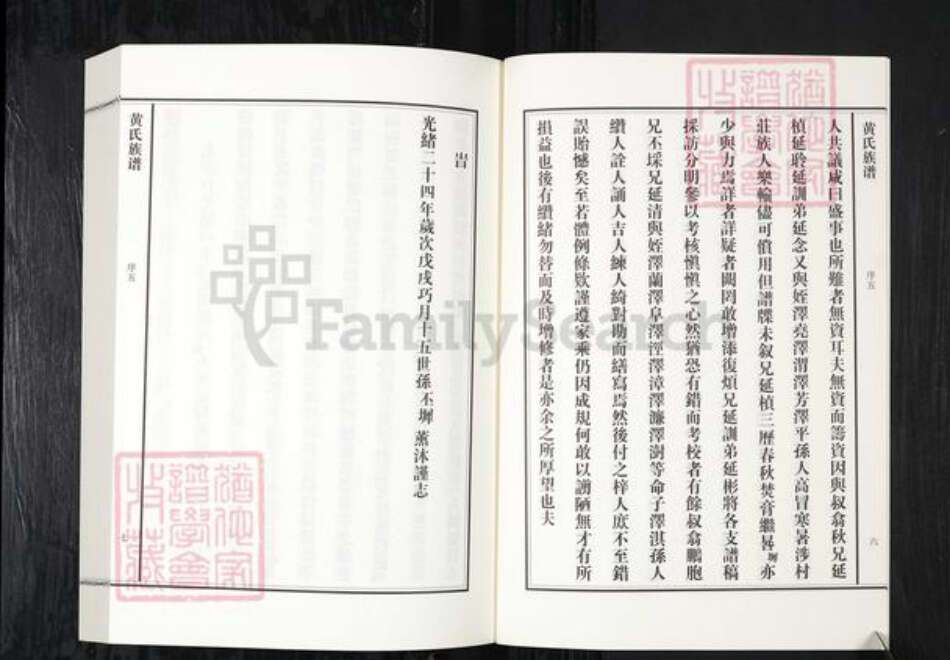 黄氏族谱
序五
六
人共議咸曰盛事也所難者無資耳夫無資而籌資因與叔翕秋兄延
楨延聆延訓弟延念又與姪澤堯澤渭澤芳澤平孫人高冒寒暑涉村
莊族人樂輸儘可償用但譜牒未叙兄延楨三歷春秋焚膏繼晷墀亦
少與力焉詳者詳疑者闕罔敢增添復煩兄延訓弟延彬將各支譜稿
採訪分明參以考核慎慎之心然猶恐有錯而考校者有餘叔翕鵬胞
兄丕埰兄延清與姪澤蘭澤阜澤涇澤漳澤濂澤澍等命子澤淇孫人
纘人詮人誦人吉人練人綺對勘而繕寫焉然後付之梓人庶不至錯
誤貽憾矣至若體例條欵謹遵家乘仍因成規何敢以譾陋無才有所
損益也後有纘緒勿替而及時增修者是亦余之所厚望也夫
旹
光緒二十四年歲次戊戌巧月十五世孫丕墀 薰沐謹志
黄氏族谱
序五
七
FamilySearch